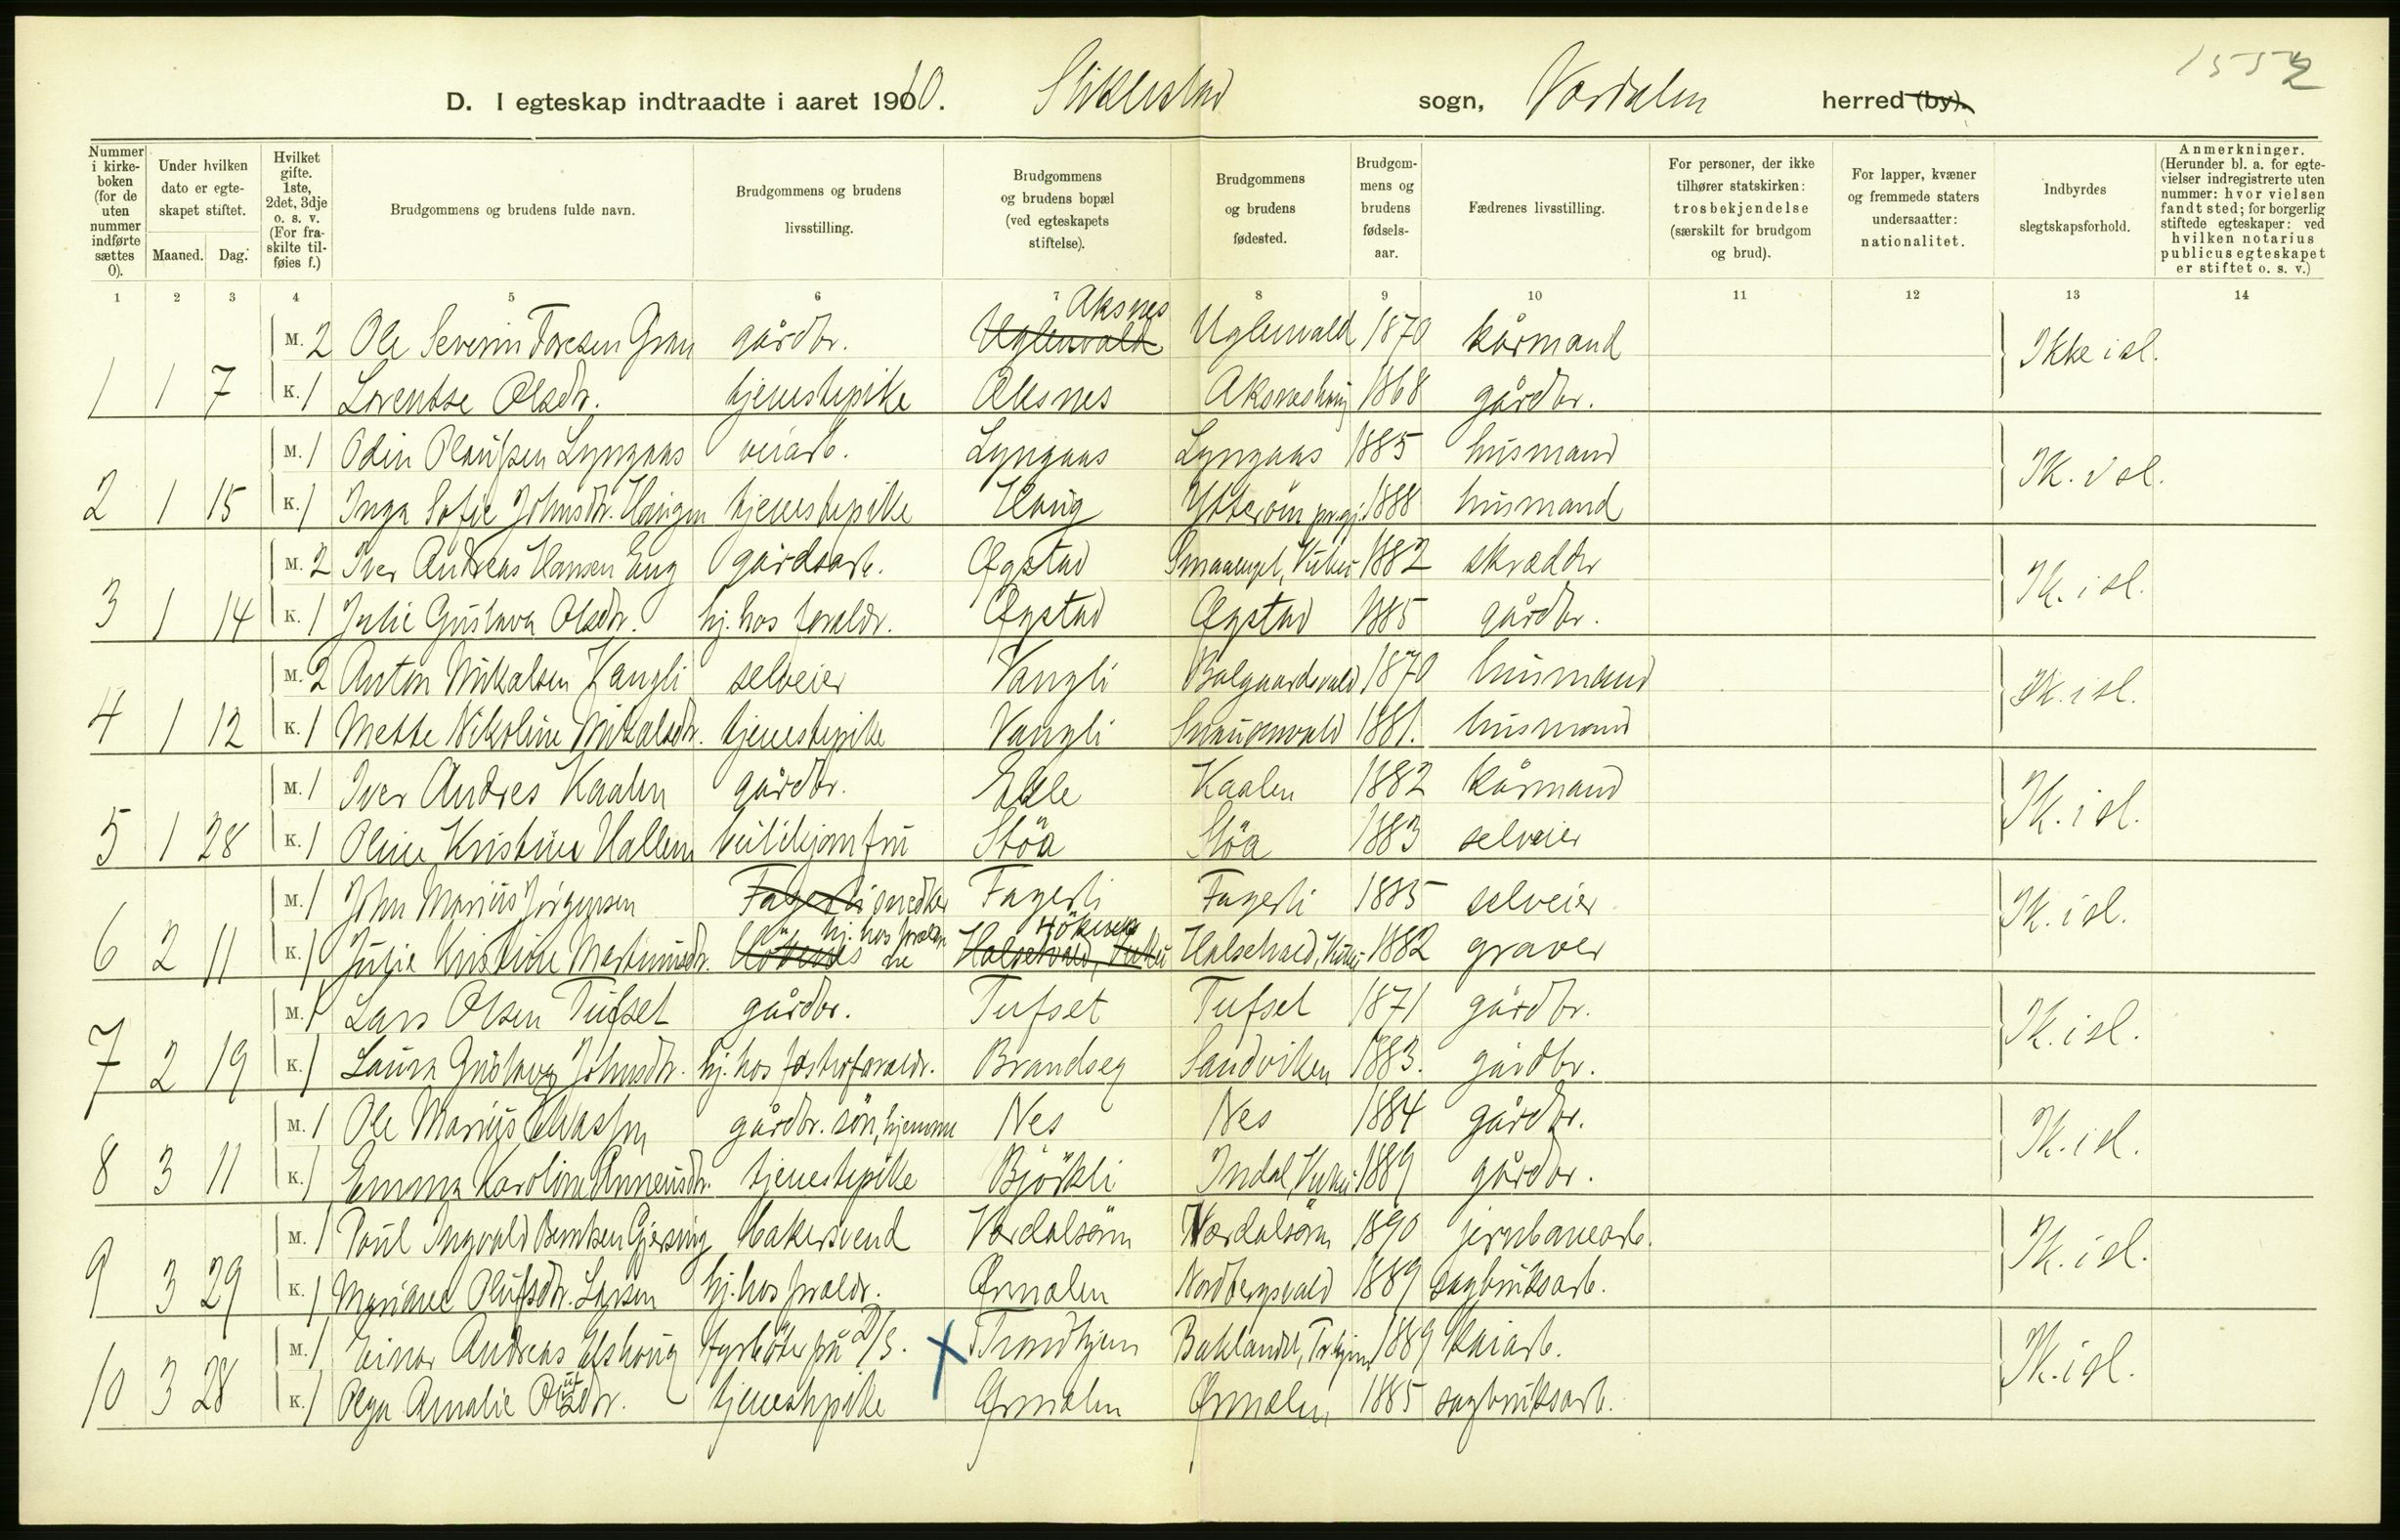 1552
D. I egteskap indtraadte i aaret 1910. Stiklestad sogn, Værdalen herred (by).
Nummer i kirkeboken (for de uten nummer indførte sættes 0). | Under hvilken dato er egteskapet stiftet. Maaned. Dag. | Hvilket gifte. 1ste, 2det, 3dje o. s. v. (For fraskilte tilføies f.) | Brudgommens og brudens fulde navn. | Brudgommens og brudens livsstilling. | Brudgommens og brudens bopæl (ved egteskapets stiftelse). | Brudgommens og brudens fødested. | Brudgommens og brudens fødselsaar. | Fædrenes livsstilling. | For personer, der ikke tilhører statskirken: trosbekjendelse (særskilt for brudgom og brud). | For lapper, kvæner og fremmede staters undersaatter: nationalitet. | Indbyrdes slegtskapsforhold. | Anmerkninger. (Herunder bl. a. for egtevielser indregistrerte uten nummer: hvor vielsen fandt sted; for borgerlig stiftede egteskaper: ved hvilken notarius publicus egteskapet er stiftet o. s. v.)
1 2 3 4 5 6 7 8 9 10 11 12 13 14
M. 2 Ole Severin Toresen Gran gårdbr. Uglenvald Aksnes Uglenvald 1870 kårmand Ikke isl.
1 1 7 K. 1 Lorentse Olsdr. tjenestepike Aksnes Aksneshaug 1868 gårdbr.
M. 1 Odin Olaussen Lyngaas veiarb. Lyngaas Lyngaas 1885 husmand IK. isl.
2 1 15 K. 1 Inga Sofie Johnsdr. Haugen tjenestepike Haug Ytterøen pr.gj. 1888 husmand
M. 2 Iver Andreas Hansen Eng gårdsarb. Øgstad Vuku 1882 skrædder IK. isl.
3 1 14 K. 1 Julie Gustava Olsdr. hj. hos foreldr. Øgstad Øgstad 1885 gårdbr.
M. 2 Anton Mikalsen Vangli selveier Vangli Balgaardsvald 1870 husmand IK. isl.
4 1 12 K. 1 Mette Nikoline Mikalsdr. tjenestepike Vangli 1881. husmand
M. 1 Iver Andres Kaalen gårdbr. Ekle Kaalen 1882 kårmand IK. isl.
5 1 28 K. 1 Oline Kristine Hallem Stöa Stöa 1883 selveier
M. 1 John Marius Jörgensen Fagerli snedker Fagerli Fagerli 1885 selveier IK. isl.
6 2 11 K. 1 Julie Kristine Martinusdr. hj. hos Halsetvald, Vuku Halsetvald, Vuku 1882 graver
M. 1 Lars Olsen Tufset gårdbr. Tufset Tufset 1871 gårdbr. IK. isl.
7 2 19 K. 1 Laura Gustava Johnsdr. hj. hos fosterforældr. Brandseg Sandviken 1883. gårdbr.
M. 1 Ole Marius gårdbr. sön, hjemme Nes Nes 1884 gårdbr. IK. isl.
8 3 11 K. 1 Emma Karoline tjenestepike Björkli Indal, Vuku 1889 gårdbr.
M. 1 Paul Ingvald Berntsen Gjersing bakersvend Værdalsören Værdalsören 1890 jernbanearb. IK. isl.
9 3 29 K. 1 Mariane Olufsdr. Larsen hj. hos foreldr. Ørmelen Nordbergsvald 1889 sagbruksarb.
M. 1 Einar Andreas Elshaug fyrböter på D/S. X Trondhjem Baklandet, Tr.hjem 1889 kaiarb. IK. isl.
10 3 28 K. 1 Olga Amalie Olufsdr. tjenestepike Ørmelen Ørmelen 1885 sagbruksarb.